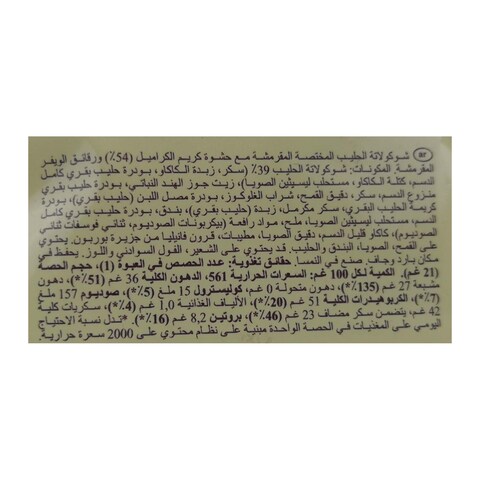 شوكولاتة الحليب المختصة المقرمشة مع حشوة كريم الكراميل (54٪) ورقائق الويفر
المقرمشة. المكونات: شوكولاتة الحليب 39٪ (سكر، زبدة الكاكاو، بودرة حليب بقري كامل
الدسم، كتلة الكاكاو، مستحلب ليسيثين الصويا)، زيت جوز الهند النباتي، بودرة حليب بقري
منزوع الدسم، سكر، دقيق القمح، شراب الغلوكوز، بودرة مصل اللبن (حليب بقري)، بودرة
كريمة الحليب البقري، سكر مكرمل، زبدة (حليب بقري)، بندق، بودرة حليب بقري كامل
الدسم، مستحلب ليسيثين الصويا، ملح، مواد رافعة (بيكربونات الصوديوم، ثنائي فوسفات ثنائي
الصوديوم)، كاكاو قليل الدسم، دقيق الصويا، مطيبات، قرون فانيليا من جزيرة بوربون. يحتوي
على القمح، الصويا، البندق والحليب. قد يحتوي على الشعير، الفول السوداني، اللوز. يحفظ في
مكان بارد وجاف. صنع في النمسا. حقائق تغذوية: عدد الحصص في العبوة (1)، حجم الحصة
(21 غم). الكمية لكل 100 غم: السعرات الحرارية 561، الدهون الكلية 36 غم (51٪*)، دهون
مشبعة 27 غم (135٪*)، دهون متحولة 0 غم، كوليسترول 15 ملغ (5٪*)، صوديوم 157 ملغ
(7٪*)، الكربوهيدرات الكلية 51 غم (20٪*)، الألياف الغذائية 1,0 غم (4٪*)، سكريات كلية
42 غم، يتضمن سكر مضاف 23 غم (46٪*)، بروتين 8,2 غم (16٪*). *تدل نسبة الاحتياج
اليومي على المغذيات في الحصة الواحدة مبنية على نظام محتوي على 2000 سعرة حرارية.